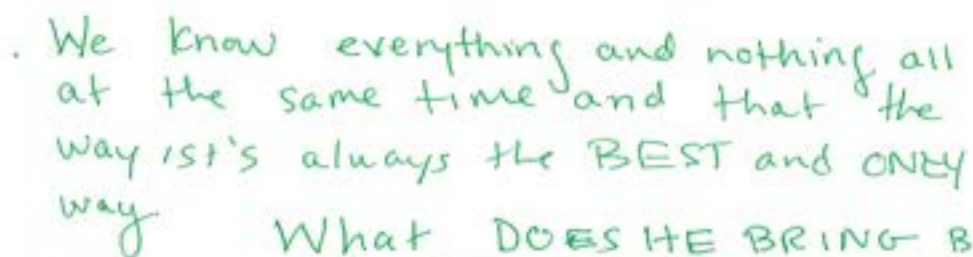 . We know everything and nothing all
at the same time and that the
way ist's always the BEST and ONLY
way.
What DOES HE BRING B